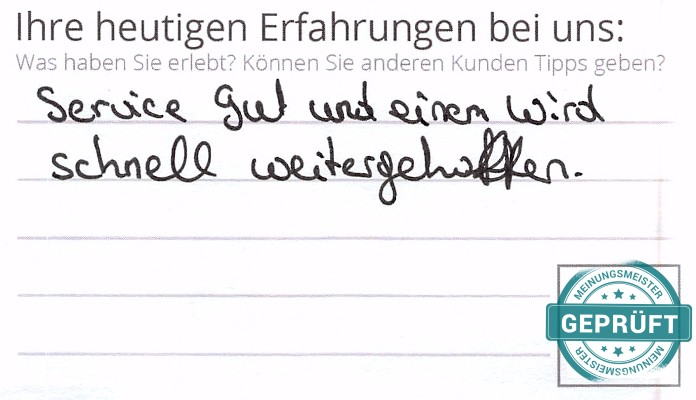 Ihre heutigen Erfahrungen bei uns:
Was haben Sie erlebt? Können Sie anderen Kunden Tipps geben?
Service gut und einem wird
schnell weitergeholfen.
MEINUNGSMEISTER
GEPRÜFT
MEINUNGSMEISTER